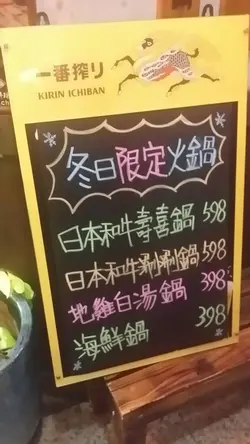 一番搾り
KIRIN ICHIBAN
冬日限定火鍋
日本和牛壽喜鍋 598
日本和牛涮涮鍋 598
地雞白湯鍋 398
海鮮鍋 398